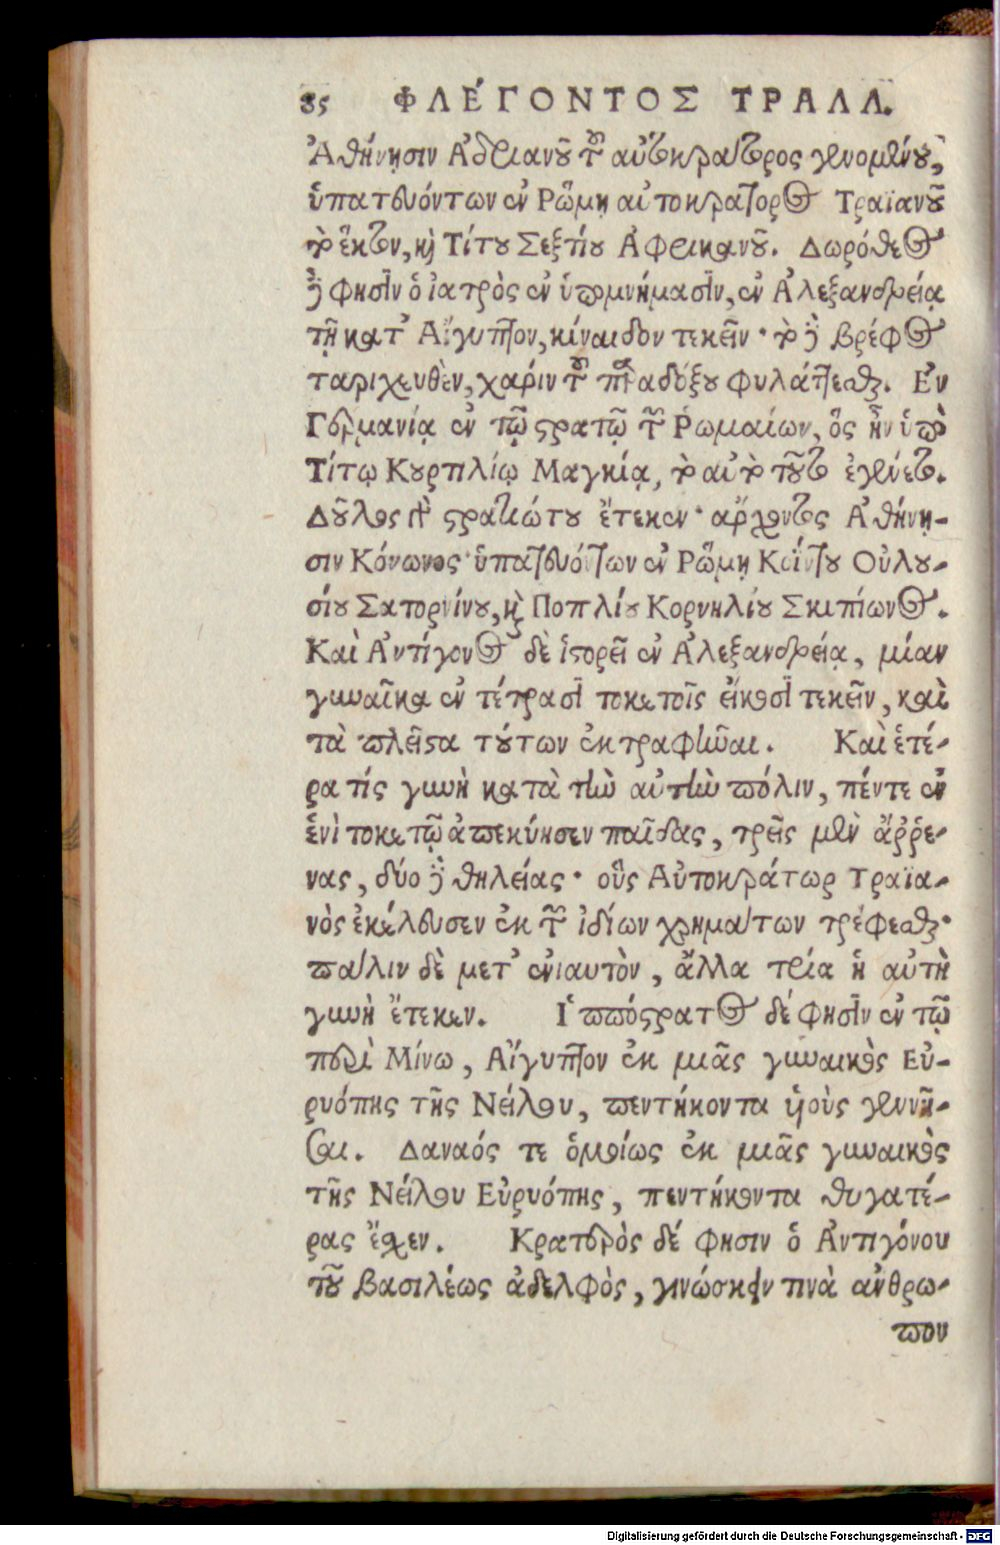 85 ΦΛΈΓΟΝΤΟΣ ΤΡΑΛΛ.
Ἀθήνησιν Ἀδριανοῦ τοῦ αὐτοκράτορος γενομένου,
ὑπατευόντων ἐν Ῥώμῃ αὐτοκράτορος Τραϊανοῦ
τὸ ἕκτον, καὶ Τίτου Σεξτίου Ἀφρικανοῦ. Δωρόθεος
δέ φησὶν ὁ ἰατρὸς ἐν ὑπομνήμασὶν, ἐν Ἀλεξανδρείᾳ
τῇ κατ' Αἴγυπτον, κίναιδον τεκεῖν· τὸ δὲ βρέφος
ταριχευθὲν, χάριν τοῦ παραδόξου φυλάττεσθαι. Ἐν
Γερμανίᾳ ἐν τῷ στρατῷ τῶν Ῥωμαίων, ὃς ἦν ὑπὸ
Τίτῳ Κουρτιλίῳ Μαγκίᾳ, τὸ αὐτὸ τοῦτο ἐγένετο.
Δοῦλος γὰρ στρατιώτου ἔτεκεν· ἄρχοντος Ἀθήνη-
σιν Κόνωνος· ὑπατευόντων ἐν Ῥώμῃ Κοΐντου Οὐλου-
σίου Σατορνίνου, καὶ Ποπλίου Κορνηλίου Σκιπίωνος.
Καὶ Ἀντίγονος δὲ ἱστορεῖ ἐν Ἀλεξανδρείᾳ, μίαν
γυναῖκα ἐν τέτρασὶ τοκετοῖς εἴκοσὶ τεκεῖν, καὶ
τὰ πλεῖστα τούτων ἐκτραφῆναι. Καὶ ἑτέ-
ρα τίς γυνὴ κατὰ τὴν αὐτὴν πόλιν, πέντε ἐν
ἑνὶ τοκετῷ ἀπεκύησεν παῖδας, τρεῖς μὲν ἄῤῥε-
νας, δύο δὲ θηλείας· οὓς Αὐτοκράτωρ Τραϊα-
νὸς ἐκέλευσεν ἐκ τῶν ἰδίων χρημάτων τρέφεσθαι·
πάλιν δὲ μετ' ἐνιαυτὸν, ἄλλα τρία ἡ αὐτὴ
γυνὴ ἔτεκεν. Ἱππόστρατος δέ φησὶν ἐν τῷ
περὶ Μίνω, Αἴγυπτον ἐκ μιᾶς γυναικὸς Εὐ-
ρυόπης τῆς Νείλου, πεντήκοντα ὑοὺς γεννῆ-
σαι. Δαναός τε ὁμοίως ἐκ μιᾶς γυναικὸς
τῆς Νείλου Εὐρυόπης, πεντήκοντα θυγατέ-
ρας ἔσχεν. Κρατερὸς δέ φησιν ὁ Ἀντιγόνου
τοῦ βασιλέως ἀδελφὸς, γινώσκειν τινὰ ἄνθρω-
που
Digitalisierung gefördert durch die Deutsche Forschungsgemeinschaft - DFG